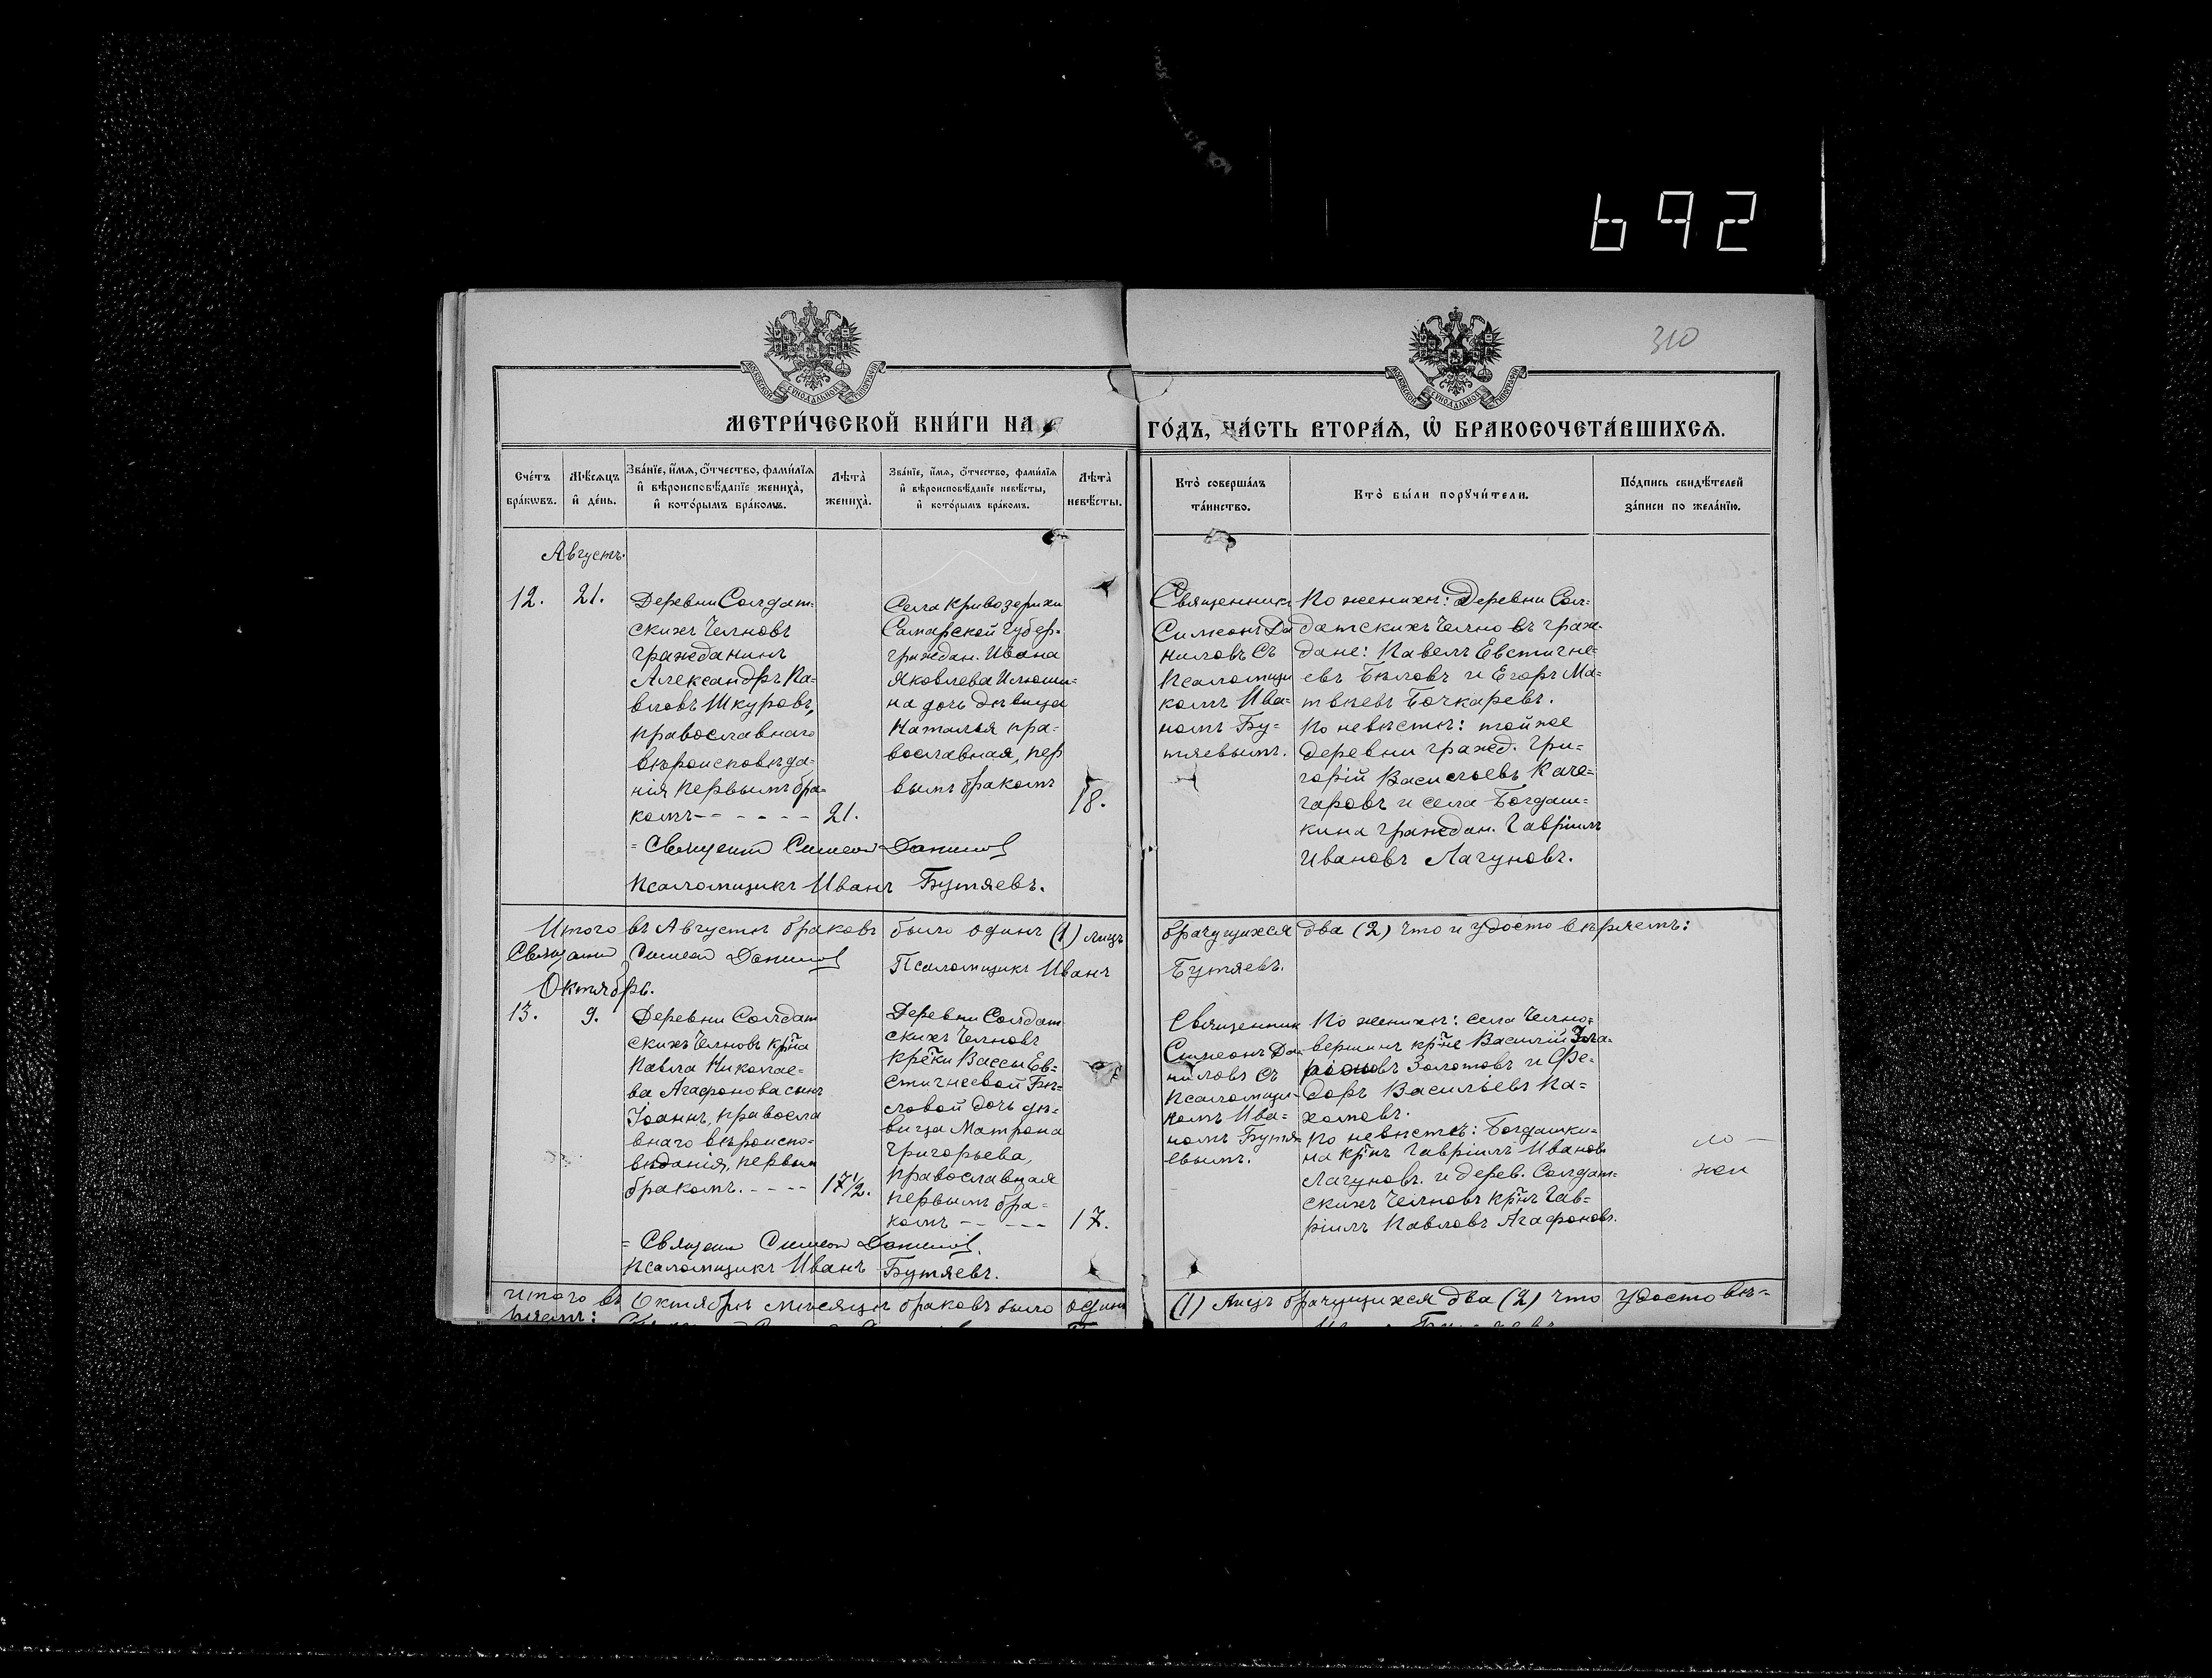 692
310
МОСКОВСКОЙ СѴНОДАЛЬНОЙ ТИПОГРАФІИ
МОСКОВСКОЙ СѴНОДАЛЬНОЙ ТИПОГРАФІИ
МЕТРИ́ЧЕСКОЙ КНИ́ГИ НА
ГО́ДЪ, ЧА́СТЬ ВТОРА́Ѧ, Ѽ БРАКОСОЧЕТА́ВШИХСѦ.
Сче́тъ бра́кѡвъ.
Мѣ́сѧцъ и҆ де́нь.
Зва́нїе, и҆́мѧ, ѻ҆́тчество, фами́лїѧ
и҆ вѣроисповѣ́данїе жениха̀,
и҆ кото́рымъ бра́комъ.
Лѣта̀ жениха̀.
Зва́нїе, и҆́мѧ, ѻ҆́тчество, фами́лїѧ
и҆ вѣроисповѣ́данїе невѣ́сты,
и҆ кото́рымъ бра́комъ.
Лѣта̀ невѣ́сты.
Кто̀ соверша́лъ
та́инство.
Кто̀ бы́ли порꙋчи́тели.
По́дпись свидѣ́телей
за́писи по жела́нїю.
Августъ.
12.
21.
Деревни Солдат=
скихъ Челновъ
гражданинъ
Александръ Па=
вловъ Шкуровъ,
православнаго
вѣроисповѣда=
нія первымъ бра=
комъ - - - - - -
21.
Села Кривозерихи
Самарской Губер=
граждан. Ивана
Яковлева Илюши=
на дочь дѣвица
Наталья пра=
вославная, пер
вымъ бракомъ
18.
Священникъ
Симеонъ Да
ниловъ съ
Псаломщи
комъ Ива=
номъ Бу=
тяевымъ.
По женихѣ: Деревни Сол=
датскихъ Челновъ граж=
дане: Павелъ Евстигне=
евъ Бѣловъ и Егоръ Ма=
твѣевъ Бочкаревъ.
По невѣстѣ: той же
деревни гражд. Гри=
горій Васильевъ Каче=
гаровъ и села Богдаш=
кина граждан. Гавріилъ
Ивановъ Лагуновъ.
= Священ Симеон Данилов
Псаломщикъ Иванъ Бутяевъ.
Итого въ Августѣ браковъ было одинъ (1) лицъ
брачущихся два (2) что и удостовѣряемъ:
Священ Симеон Данилов Псаломщикъ Иванъ
Бутяевъ.
Октябрь.
13.
9.
Деревни Солдат
скихъ Челновъ кр-на
Павла Николае=
ва Агафонова сынъ
Іоаннъ, правосла
внаго вѣроиспо=
вѣданія, первым
бракомъ. - - - -
17 1/2.
Деревни Солдат
скихъ Челновъ
кре-ки Вассы Ев=
стигнеевой Бѣ=
ловой дочь дѣ=
вица Матрона
Григорьева,
православная
первымъ бра=
комъ - - - - -
17.
Священник
Симеонъ Да
ниловъ съ
Псаломщи=
комъ Ива=
номъ Бутя=
евымъ.
По женихѣ: села Челно=
вершинъ кр-не Василій
Золотовъ и Фе=
доръ Васильевъ Па=
хомовъ.
По невѣстѣ: Богдашки=
на кр-нъ Гавріилъ Ивановъ
Лагуновъ. и дерев. Солдат=
скихъ Челновъ кр-нъ Гав=
ріилъ Павловъ Агафоновъ.
= Священ Симеон Данилов.
Псаломщикъ Иванъ Бутяевъ.
Итого въ Октябрѣ мѣсяцѣ браковъ было одинъ
(1) Лицъ брачущихся два (2) что удостовѣ=
ряемъ: